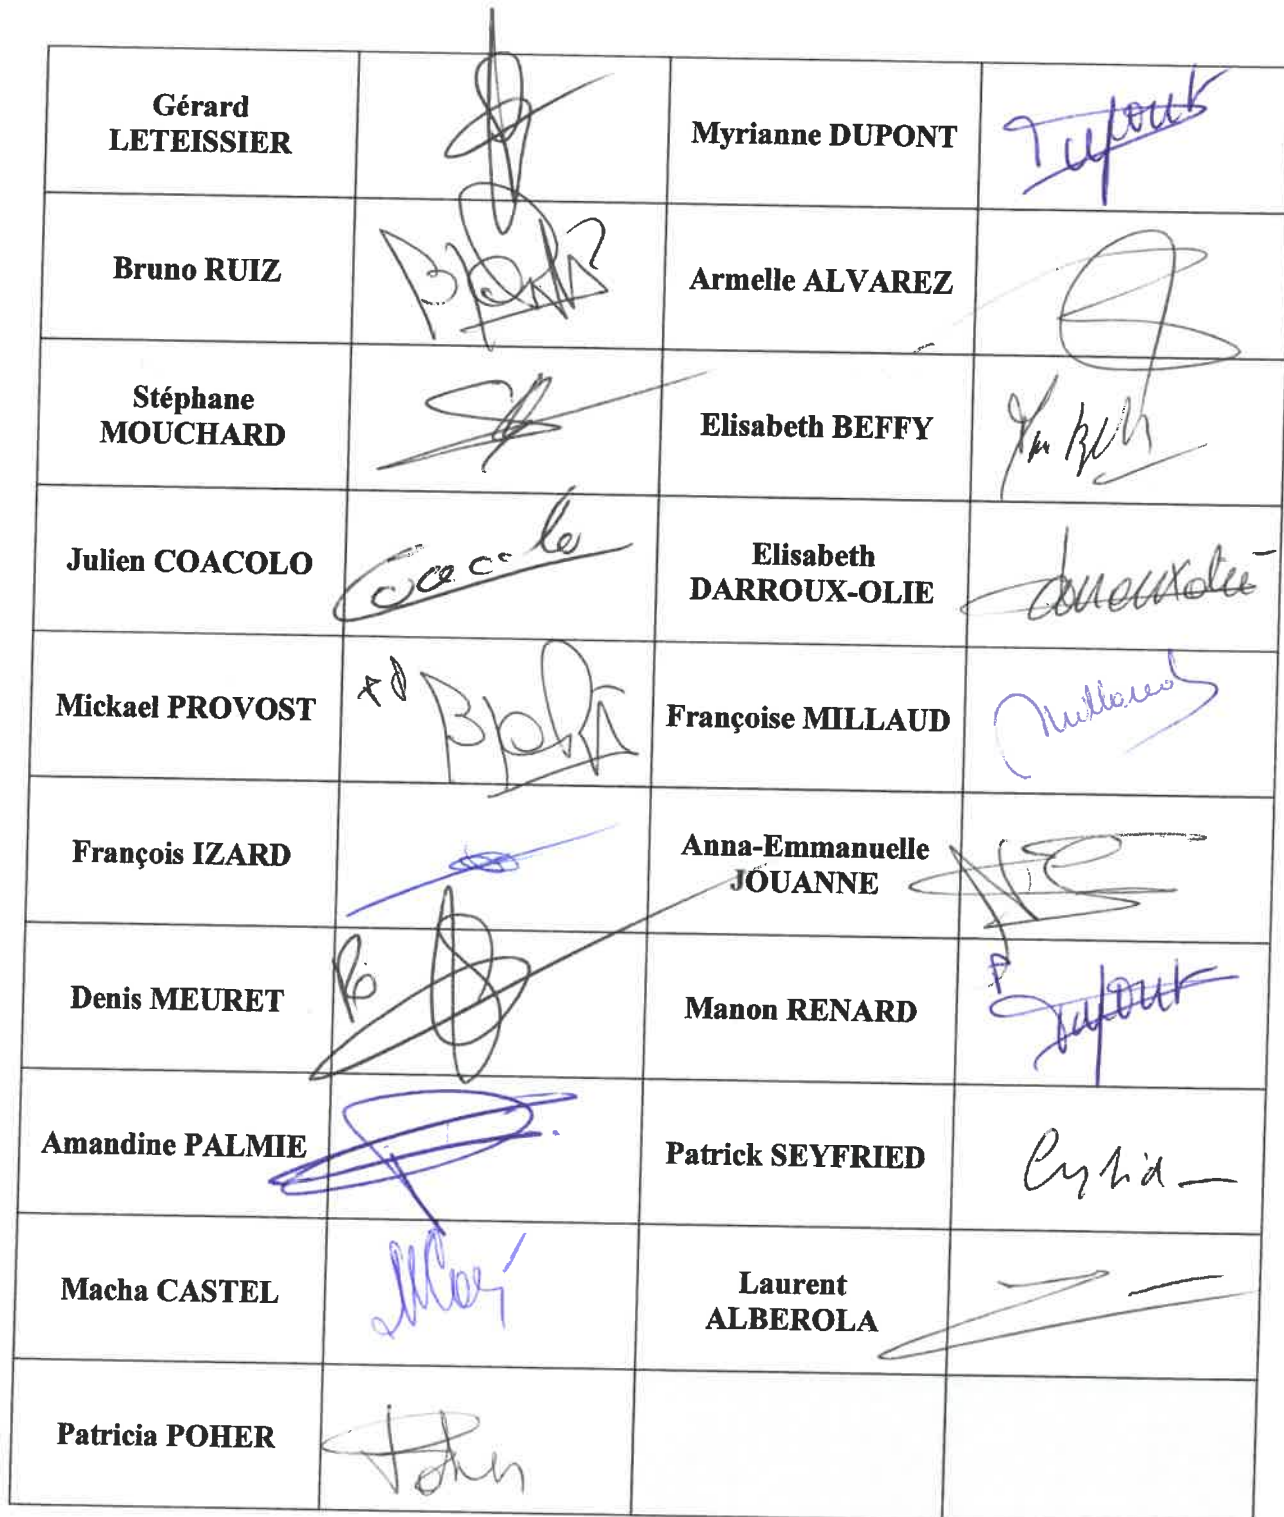 Gérard
LETEISSIER
Myrianne DUPONT
Dupont
Bruno RUIZ
Armelle ALVAREZ
Stéphane
MOUCHARD
Elisabeth BEFFY
Julien COACOLO
Coacolo
Elisabeth
DARROUX-OLIE
darrouxolié
Mickael PROVOST
Françoise MILLAUD
Millaud
François IZARD
Anna-Emmanuelle
JOUANNE
Denis MEURET
Manon RENARD
Dupont
Amandine PALMIE
Patrick SEYFRIED
Macha CASTEL
Laurent
ALBEROLA
Patricia POHER
Poher